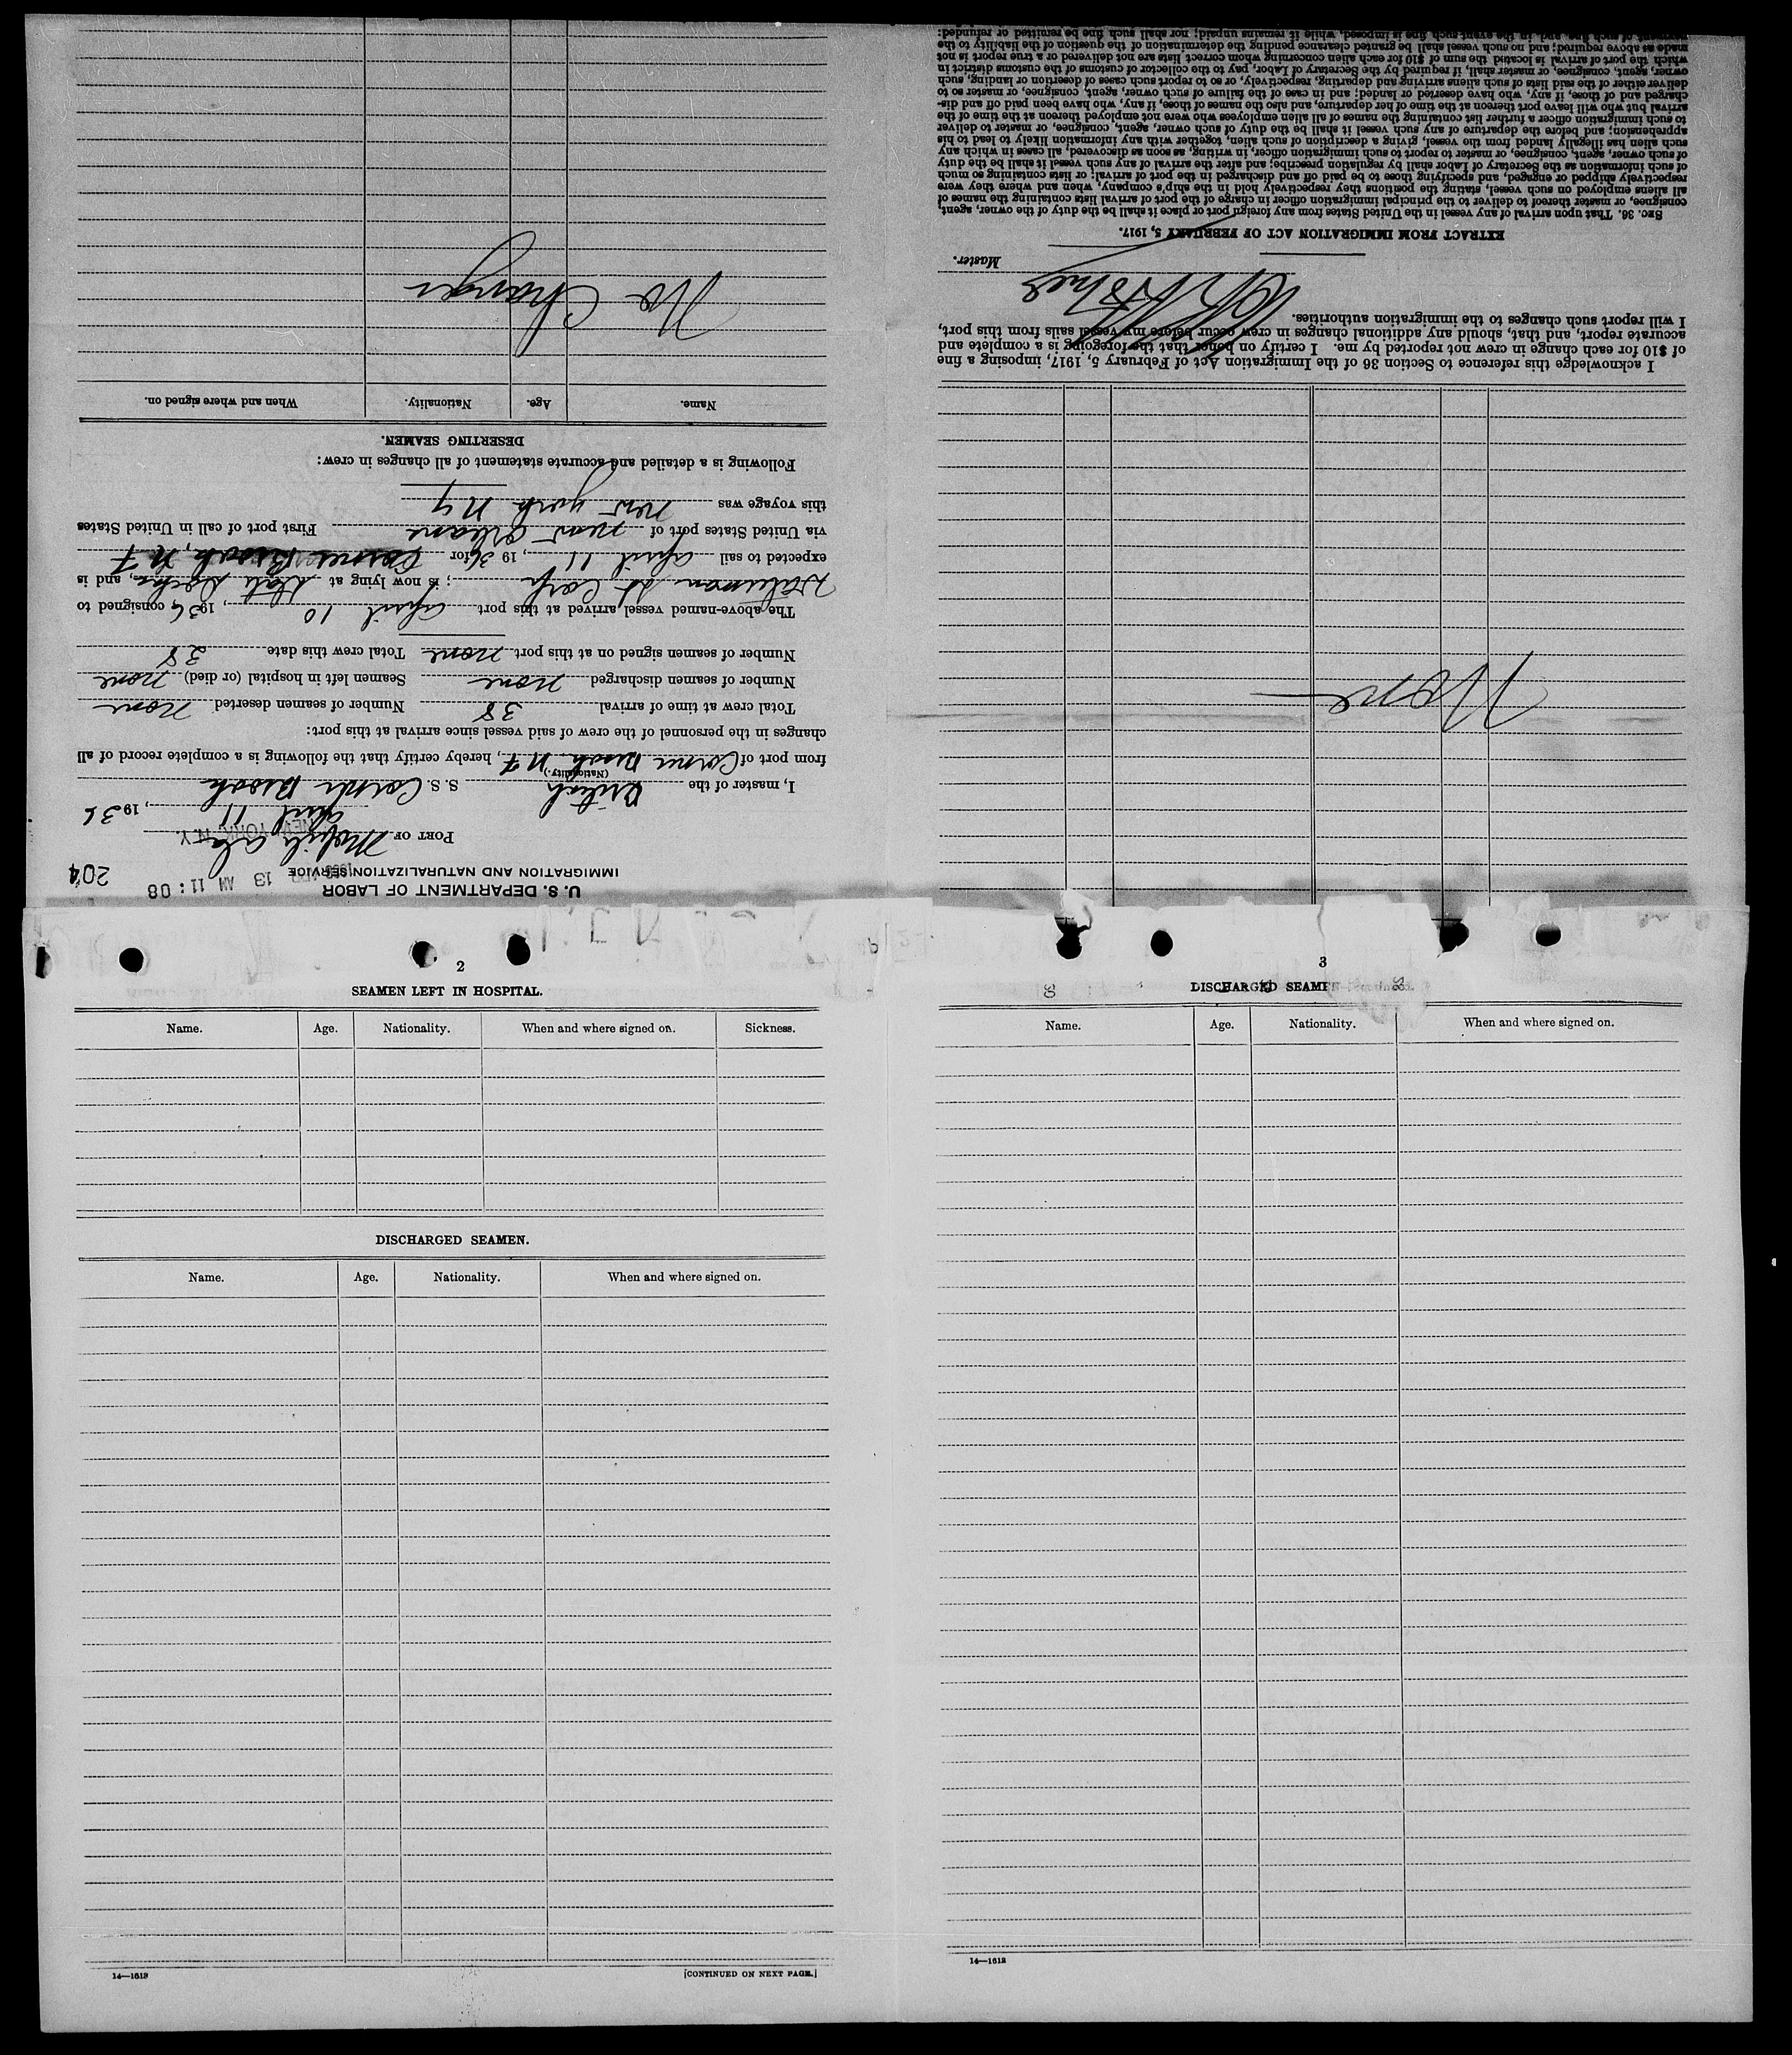 U. S. DEPARTMENT OF LABOR
IMMIGRATION AND NATURALIZATION SERVICE
13 AM 11:08
204
PORT OF Mobile Ala
NEW YORK N.Y.
April 11, 1936
I, master of the British S. S. Corner Brook
(Nationality.)
from port of Corner Brook N F, hereby certify that the following is a complete record of all
changes in the personnel of the crew of said vessel since arrival at this port:
Total crew at time of arrival 38 Number of seamen deserted none
Number of seamen discharged none Seamen left in hospital (or died) none
Number of seamen signed on at this port none Total crew this date 38
The above-named vessel arrived at this port April 10, 1936, consigned to
Waterman SS Corp; is now lying at State Docks, and is
expected to sail April 11, 1936 for Corner Brook, N F
via United States port of New Orleans First port of call in United States
this voyage was New York N Y
Following is a detailed and accurate statement of all changes in crew:
DESERTING SEAMEN.
Name. Age. Nationality. When and where signed on.
No Changes
None
I acknowledge this reference to Section 36 of the Immigration Act of February 5, 1917, imposing a fine
of $10 for each change in crew not reported by me. I certify on honor that the foregoing is a complete and
accurate report, and that, should any additional changes in crew occur before my vessel sails from this port,
I will report such changes to the immigration authorities.
Master.
EXTRACT FROM IMMIGRATION ACT OF FEBRUARY 5, 1917.
SEC. 36. That upon arrival of any vessel in the United States from any foreign port or place it shall be the duty of the owner, agent,
consignee, or master thereof to deliver to the principal immigration officer in charge of the port of arrival lists containing the names of
all aliens employed on such vessel, stating the positions they respectively hold in the ship's company, when and where they were
respectively shipped or engaged, and specifying those to be paid off and discharged in the port of arrival; or lists containing so much
of such information as the Secretary of Labor shall by regulation prescribe; and after the arrival of any such vessel it shall be the duty
of such owner, agent, consignee, or master to report to such immigration officer, in writing, as soon as discovered, all cases in which any
such alien has illegally landed from the vessel, giving a description of such alien, together with any information likely to lead to his
apprehension; and before the departure of any such vessel it shall be the duty of such owner, agent, consignee, or master to deliver
to such immigration officer a further list containing the names of all alien employees who were not employed thereon at the time of the
arrival but who will leave port thereon at the time of her departure, and also the names of those, if any, who have been paid off and dis-
charged and of those, if any, who have deserted or landed; and in case of the failure of such owner, agent, consignee, or master so to
deliver either of the said lists of such aliens arriving and departing, respectively, or so to report such cases of desertion or landing, such
owner, agent, consignee, or master shall, if required by the Secretary of Labor, pay to the collector of customs of the customs district in
which the port of arrival is located the sum of $10 for each alien concerning whom correct lists are not delivered or a true report is not
made as above required; and no such vessel shall be granted clearance pending the determination of the question of the liability to the
payment of such fine, and, in the event such fine is imposed, while it remains unpaid; nor shall such fine be remitted or refunded:
2
SEAMEN LEFT IN HOSPITAL.
Name. Age. Nationality. When and where signed on. Sickness.
DISCHARGED SEAMEN.
Name. Age. Nationality. When and where signed on.
14—1613
[CONTINUED ON NEXT PAGE.]
3
DISCHARGED SEAMEN
Name. Age. Nationality. When and where signed on.
14—1613